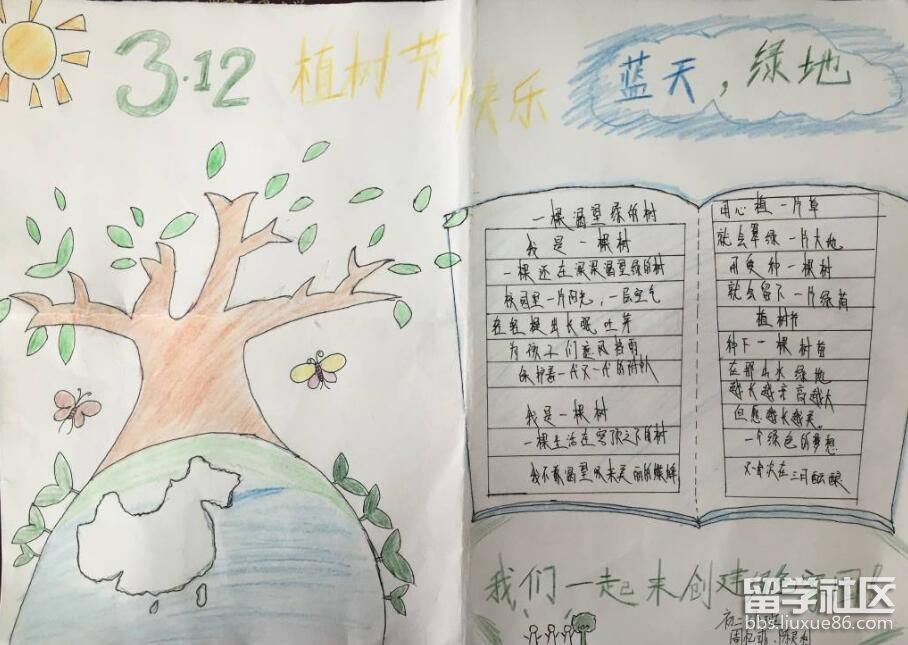 3·12 植树节快乐
蓝天，绿地
一棵渴望绿的树
我是一棵树
一棵还在深深渴望绿的树
校园里一片阳光，一层空气
在轻轻提出长眠吐芽
为孩子们遮风挡雨
保护着一代又一代的
我是一棵树
一棵生活在穹顶之下的树
我不敢渴望
用心植一片草
就会翠绿一片大地
用爱种一棵树
就会留下一片绿荫
植树节
种下一棵树苗
在那山水绿地
越长越高越大
但愿越长越美。
一个绿色的梦想
在三月酝酿
我们一起来创建
初二
留学社区
bbs.liuxue86.com